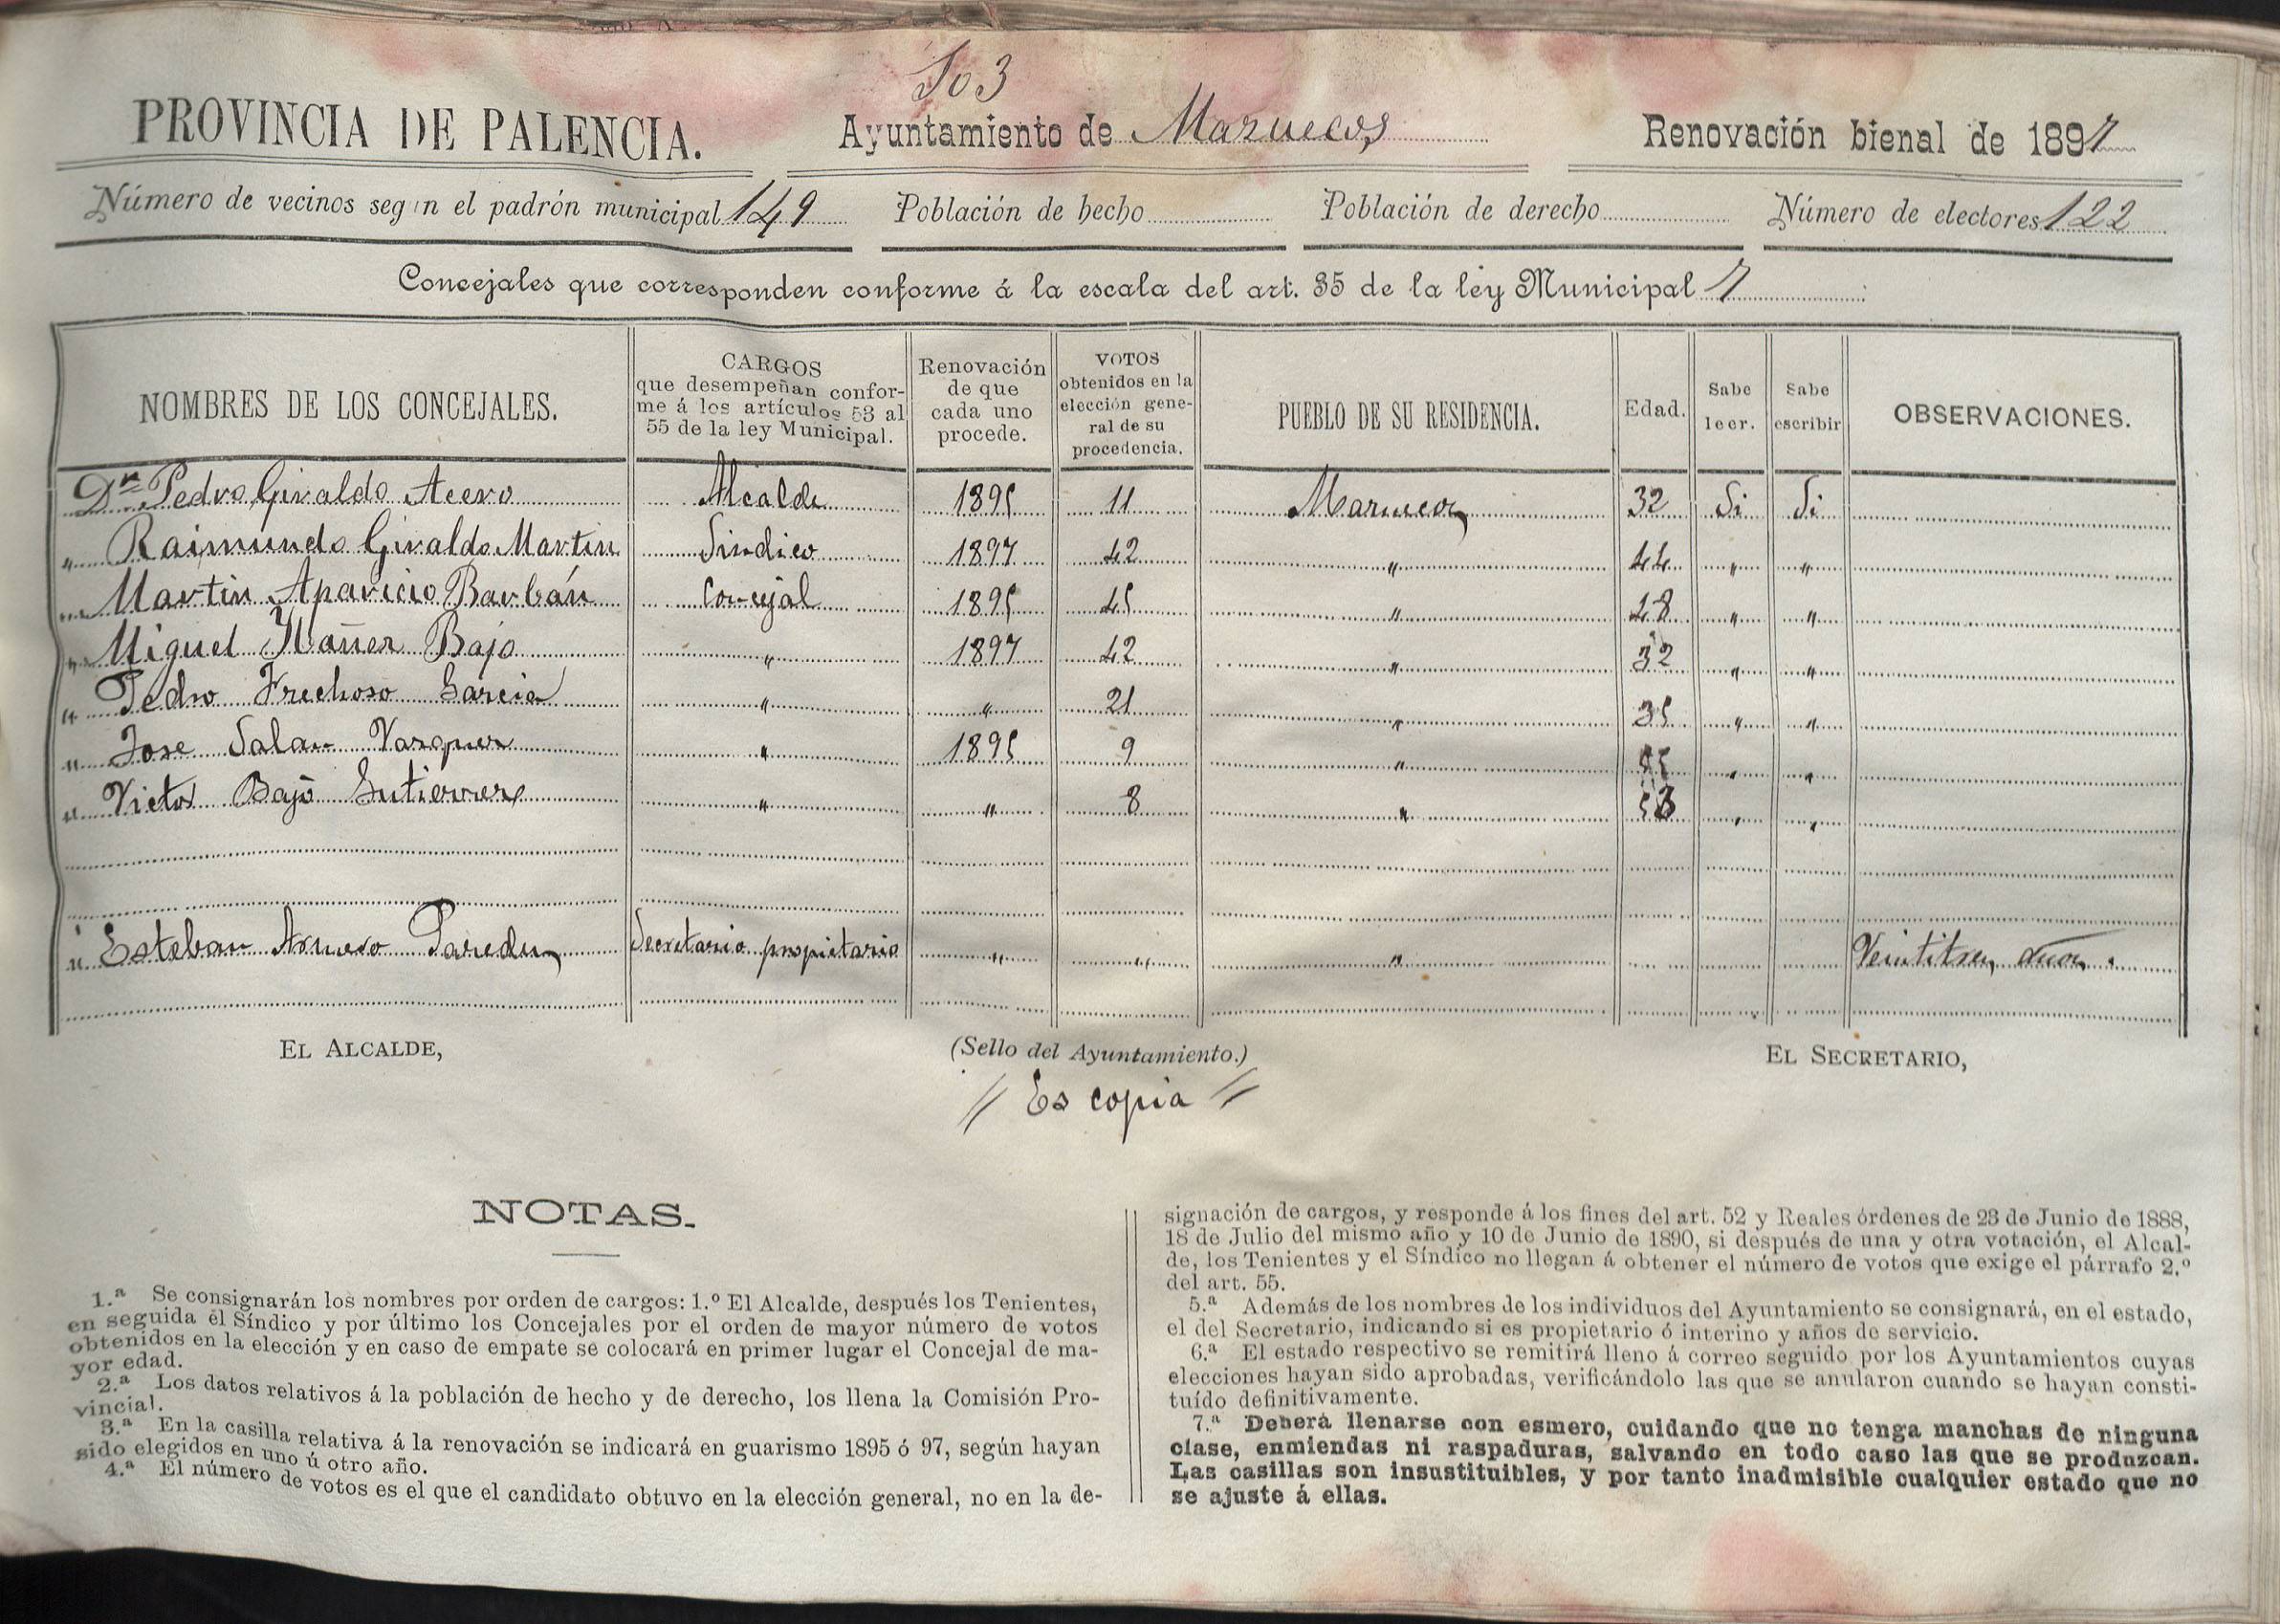 103
PROVINCIA DE PALENCIA.
Ayuntamiento de Mazuecos
Renovación bienal de 1897
Número de vecinos según el padrón municipal 149
Población de hecho
Población de derecho
Número de electores 122
Concejales que corresponden conforme á la escala del art. 35 de la ley Municipal 7
NOMBRES DE LOS CONCEJALES.
CARGOS
que desempeñan confor-
me á los artículos 53 al
55 de la ley Municipal.
Renovación
de que
cada uno
procede.
VOTOS
obtenidos en la
elección gene-
ral de su
procedencia.
PUEBLO DE SU RESIDENCIA.
Edad.
Sabe
leer.
Sabe
escribir
OBSERVACIONES.
Dn Pedro Giraldo Acero Alcalde 1895 11 Mazuecos 32 Si Si
" Raimundo Giraldo Martin Sindico 1897 42 " 44 " "
" Martin Aparicio Barbán Concejal 1895 45 " 48 " "
" Miguel Ibañez Bajo " 1897 42 " 32 " "
" Pedro Frechoso Garcia " " 21 " 35 " "
" Jose Salan Vazquez " 1895 9 " "  "
" Victor Bajo Gutierrez " " 8 " 53 " "
" Esteban Paredes Secretario propietario " " " Veintitres años.
EL ALCALDE,
(Sello del Ayuntamiento.)
EL SECRETARIO,
// Es copia //
NOTAS.
1.ª Se consignarán los nombres por orden de cargos: 1.º El Alcalde, después los Tenientes,
en seguida el Síndico y por último los Concejales por el orden de mayor número de votos
obtenidos en la elección y en caso de empate se colocará en primer lugar el Concejal de ma-
yor edad.
2.ª Los datos relativos á la población de hecho y de derecho, los llena la Comisión Pro-
vincial.
3.ª En la casilla relativa á la renovación se indicará en guarismo 1895 ó 97, según hayan
sido elegidos en uno ú otro año.
4.ª El número de votos es el que el candidato obtuvo en la elección general, no en la de-
signación de cargos, y responde á los fines del art. 52 y Reales órdenes de 23 de Junio de 1888,
18 de Julio del mismo año y 10 de Junio de 1890, si después de una y otra votación, el Alcal-
de, los Tenientes y el Síndico no llegan á obtener el número de votos que exige el párrafo 2.º
del art. 55.
5.ª Además de los nombres de los individuos del Ayuntamiento se consignará, en el estado,
el del Secretario, indicando si es propietario ó interino y años de servicio.
6.ª El estado respectivo se remitirá lleno á correo seguido por los Ayuntamientos cuyas
elecciones hayan sido aprobadas, verificándolo las que se anularon cuando se hayan consti-
tuído definitivamente.
7.ª Deberá llenarse con esmero, cuidando que no tenga manchas de ninguna
clase, enmiendas ni raspaduras, salvando en todo caso las que se produzcan.
Las casillas son insustituibles, y por tanto inadmisible cualquier estado que no
se ajuste á ellas.